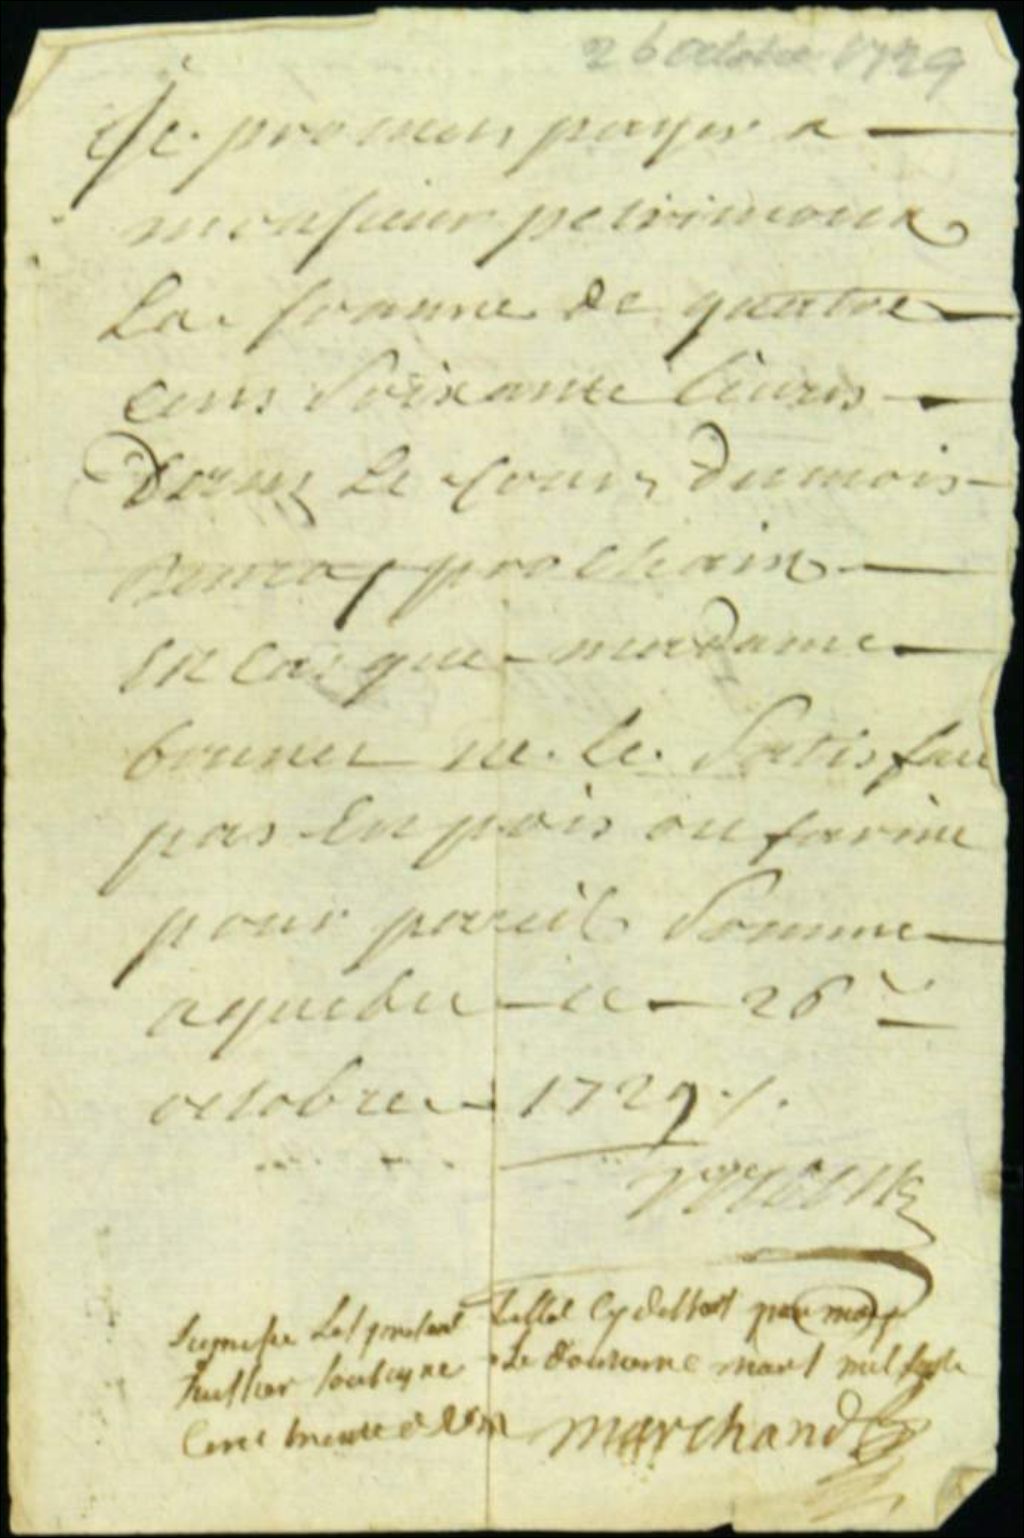 26 octobre 1729
Je promeus payer a
monsieur petrimoux
La somme de quatre
cens soixante livres
Dans Le cour, Du mois
De may prochain
En cas que madame
brunet ne Le Satisface
pas En pois ou farine
pour pareil Somme
a quebec ce 26
octobre 1729 ./.
Signifie Le present billet cy dessus par moy
huissier soubsigne Le douzieme mars mil sept
Cens trente & un marchand